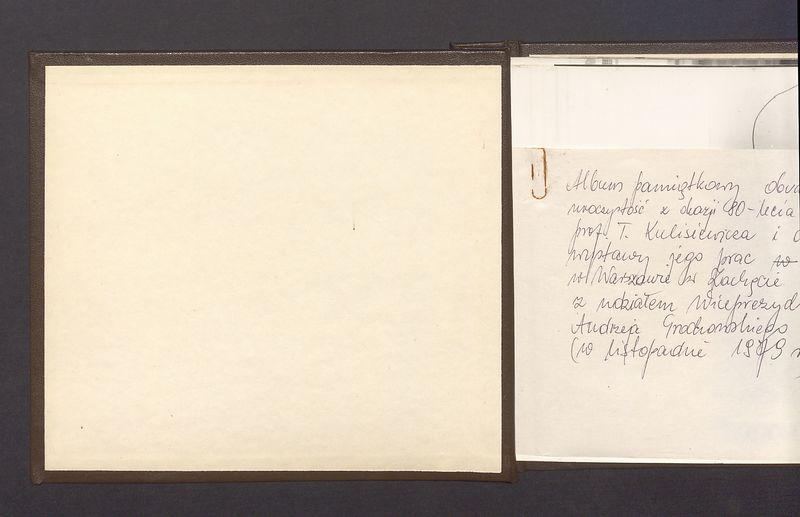 Album pamiątkowy
uroczystość z okazji 80-lecia
prof. T. Kulisiewicza i
wystawy jego prac w
w Warszawie w Zachęcie
z udziałem Wiceprezyd
Andrzeja Grabowskiego
(w listopadzie 1979 r